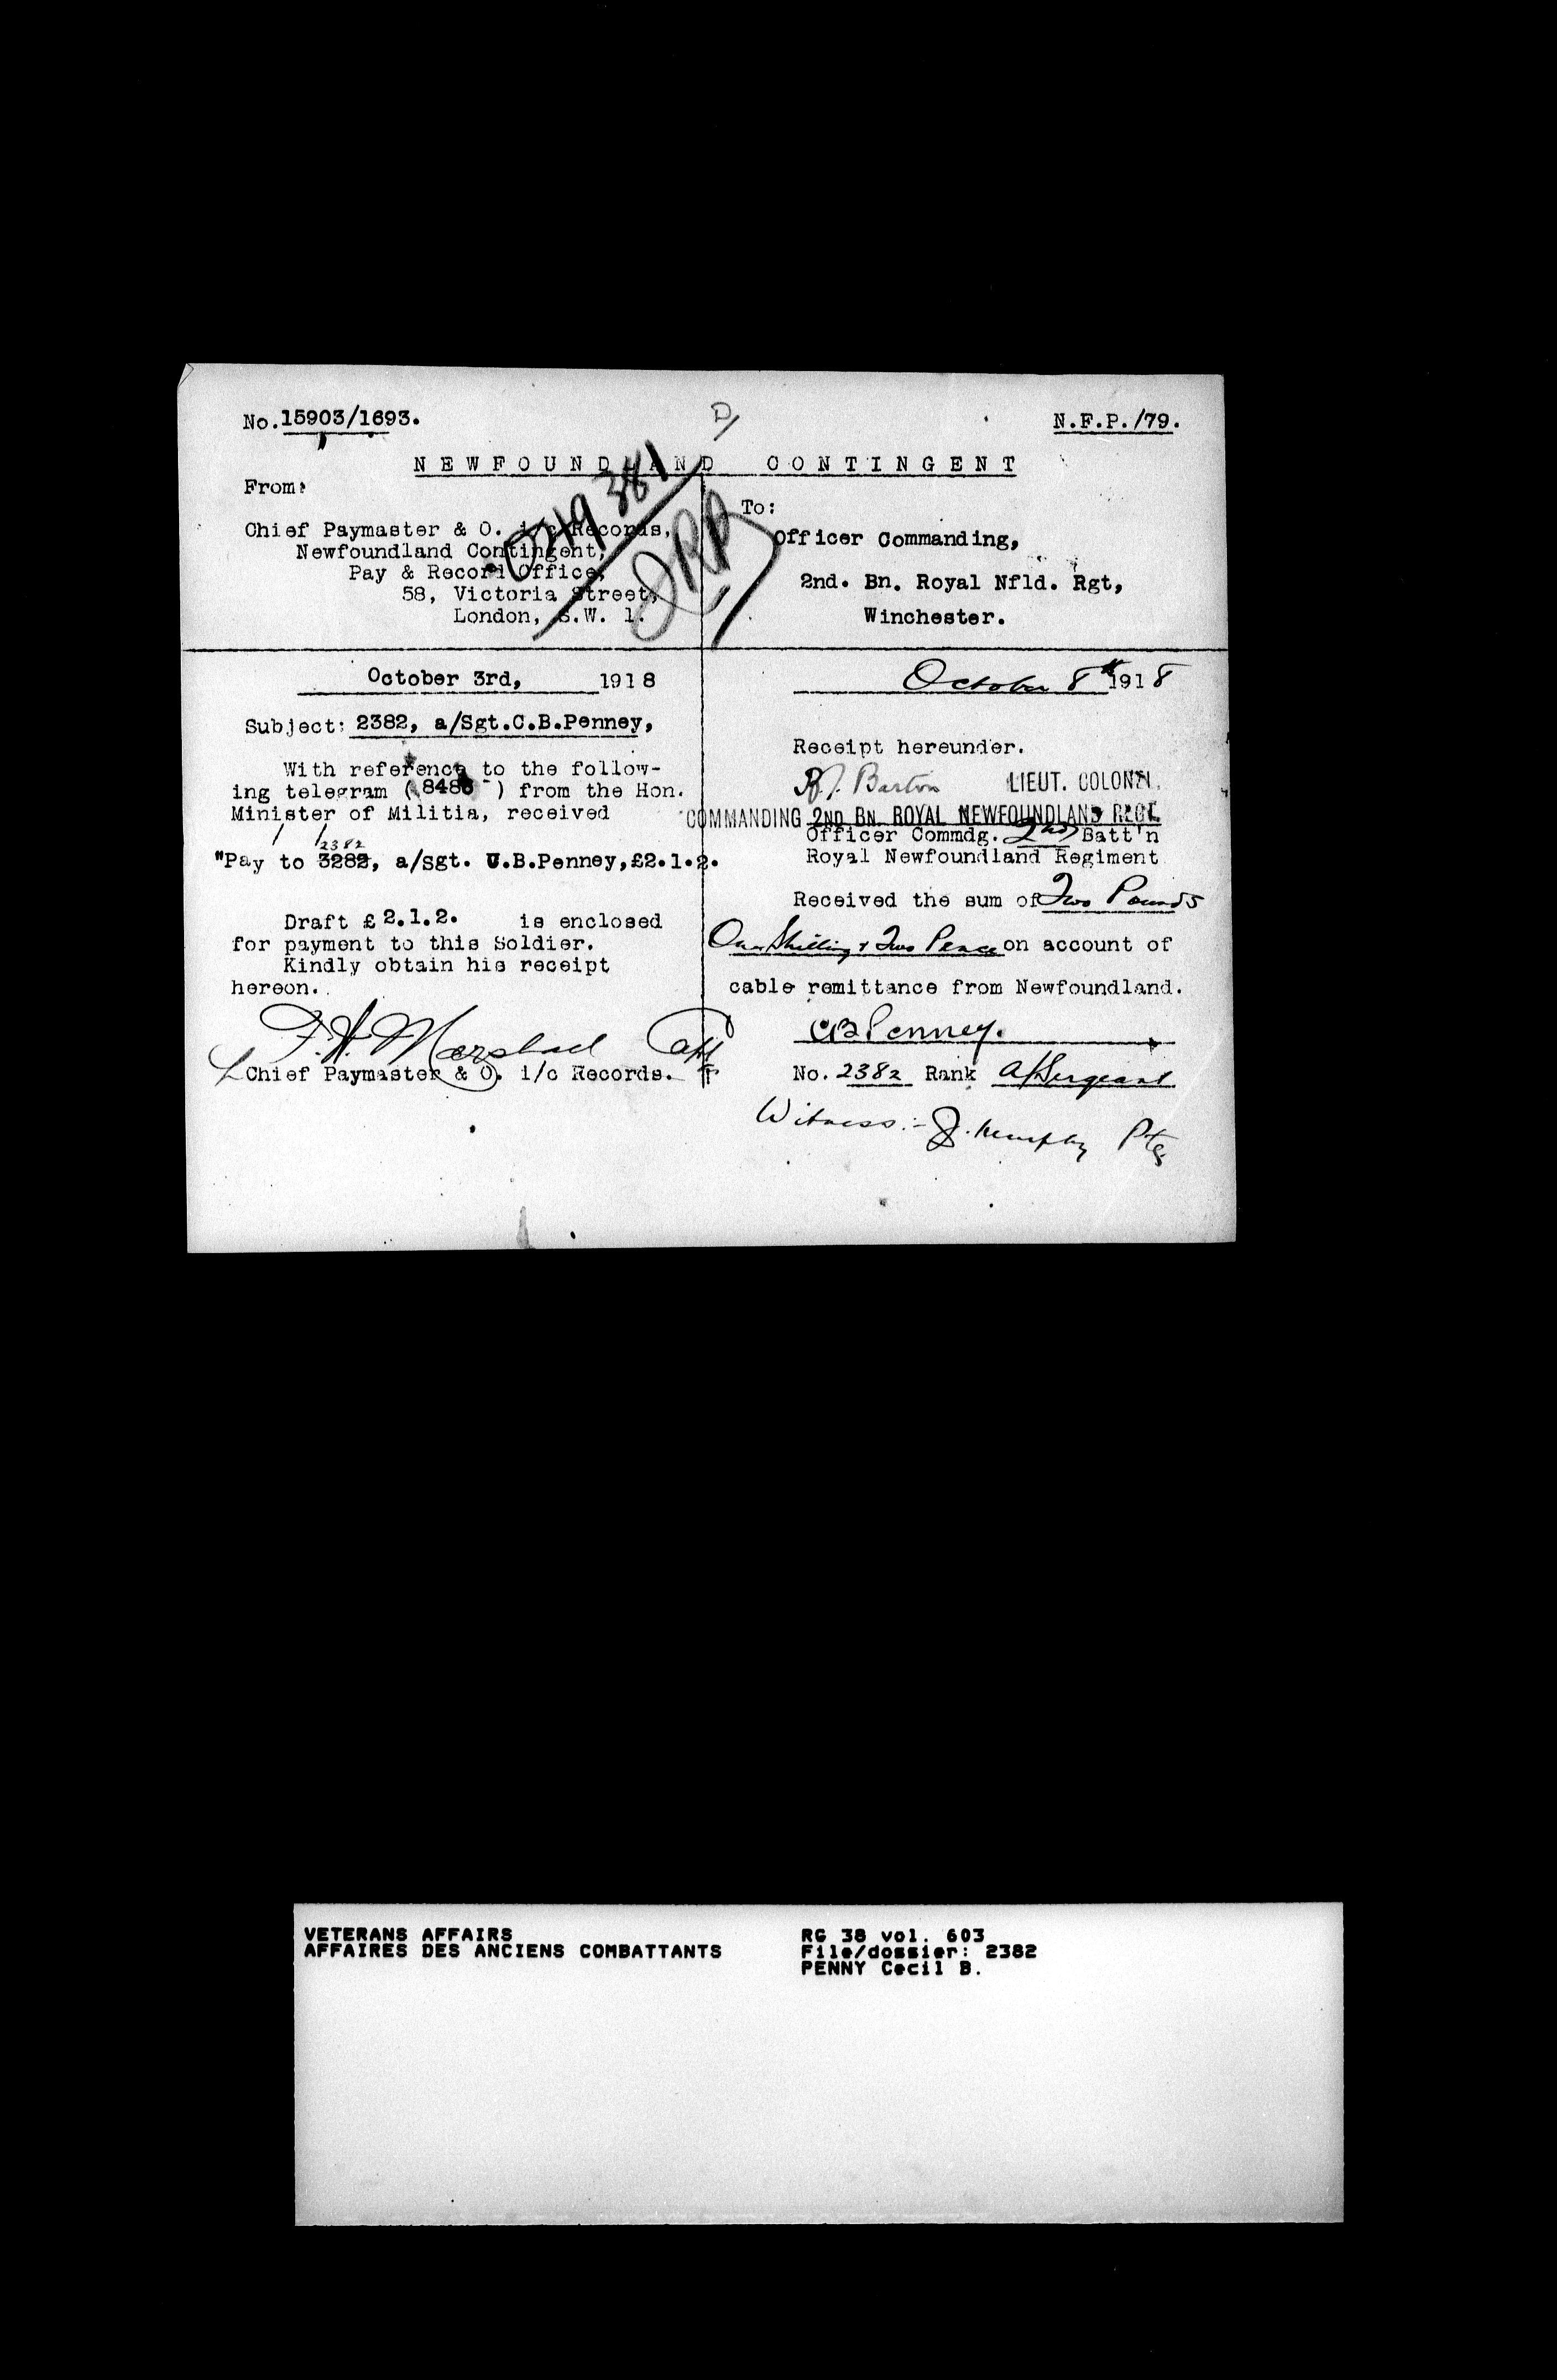 No.15903/1693.
D/
N.F.P./79.
NEWFOUNDLAND CONTINGENT
From:
Chief Paymaster & O. i/c Records,
Newfoundland Contingent,
Pay & Record Office,
58, Victoria Street,
London, S.W. 1.
To:
Officer Commanding,
2nd. Bn. Royal Nfld. Rgt,
Winchester.
October 3rd, 1918
Subject: 2382, a/Sgt.C.B.Penney,
With reference to the follow-
ing telegram (8486 ) from the Hon.
Minister of Militia, received
2382
"Pay to 3282, a/sgt. C.B.Penney,£2.1.2.
Draft £2.1.2. is enclosed
for payment to this Soldier.
Kindly obtain his receipt
hereon.
F.H. Marshall Capt
Chief Paymaster & O. i/c Records.
October 8th 1918
Receipt hereunder.
Barton LIEUT. COLONEL,
COMMANDING 2ND BN. ROYAL NEWFOUNDLAND REGT.
Officer Commdg. 2nd Batt'n
Royal Newfoundland Regiment
Received the sum of Two Pounds
One Shilling & Two Pence on account of
cable remittance from Newfoundland.
CB Penney.
No. 2382 Rank A/Sergeant
Witness:- J. Murphy Pte
VETERANS AFFAIRS
AFFAIRES DES ANCIENS COMBATTANTS
RG 38 vol. 603
File/dossier: 2382
PENNY Cecil B.